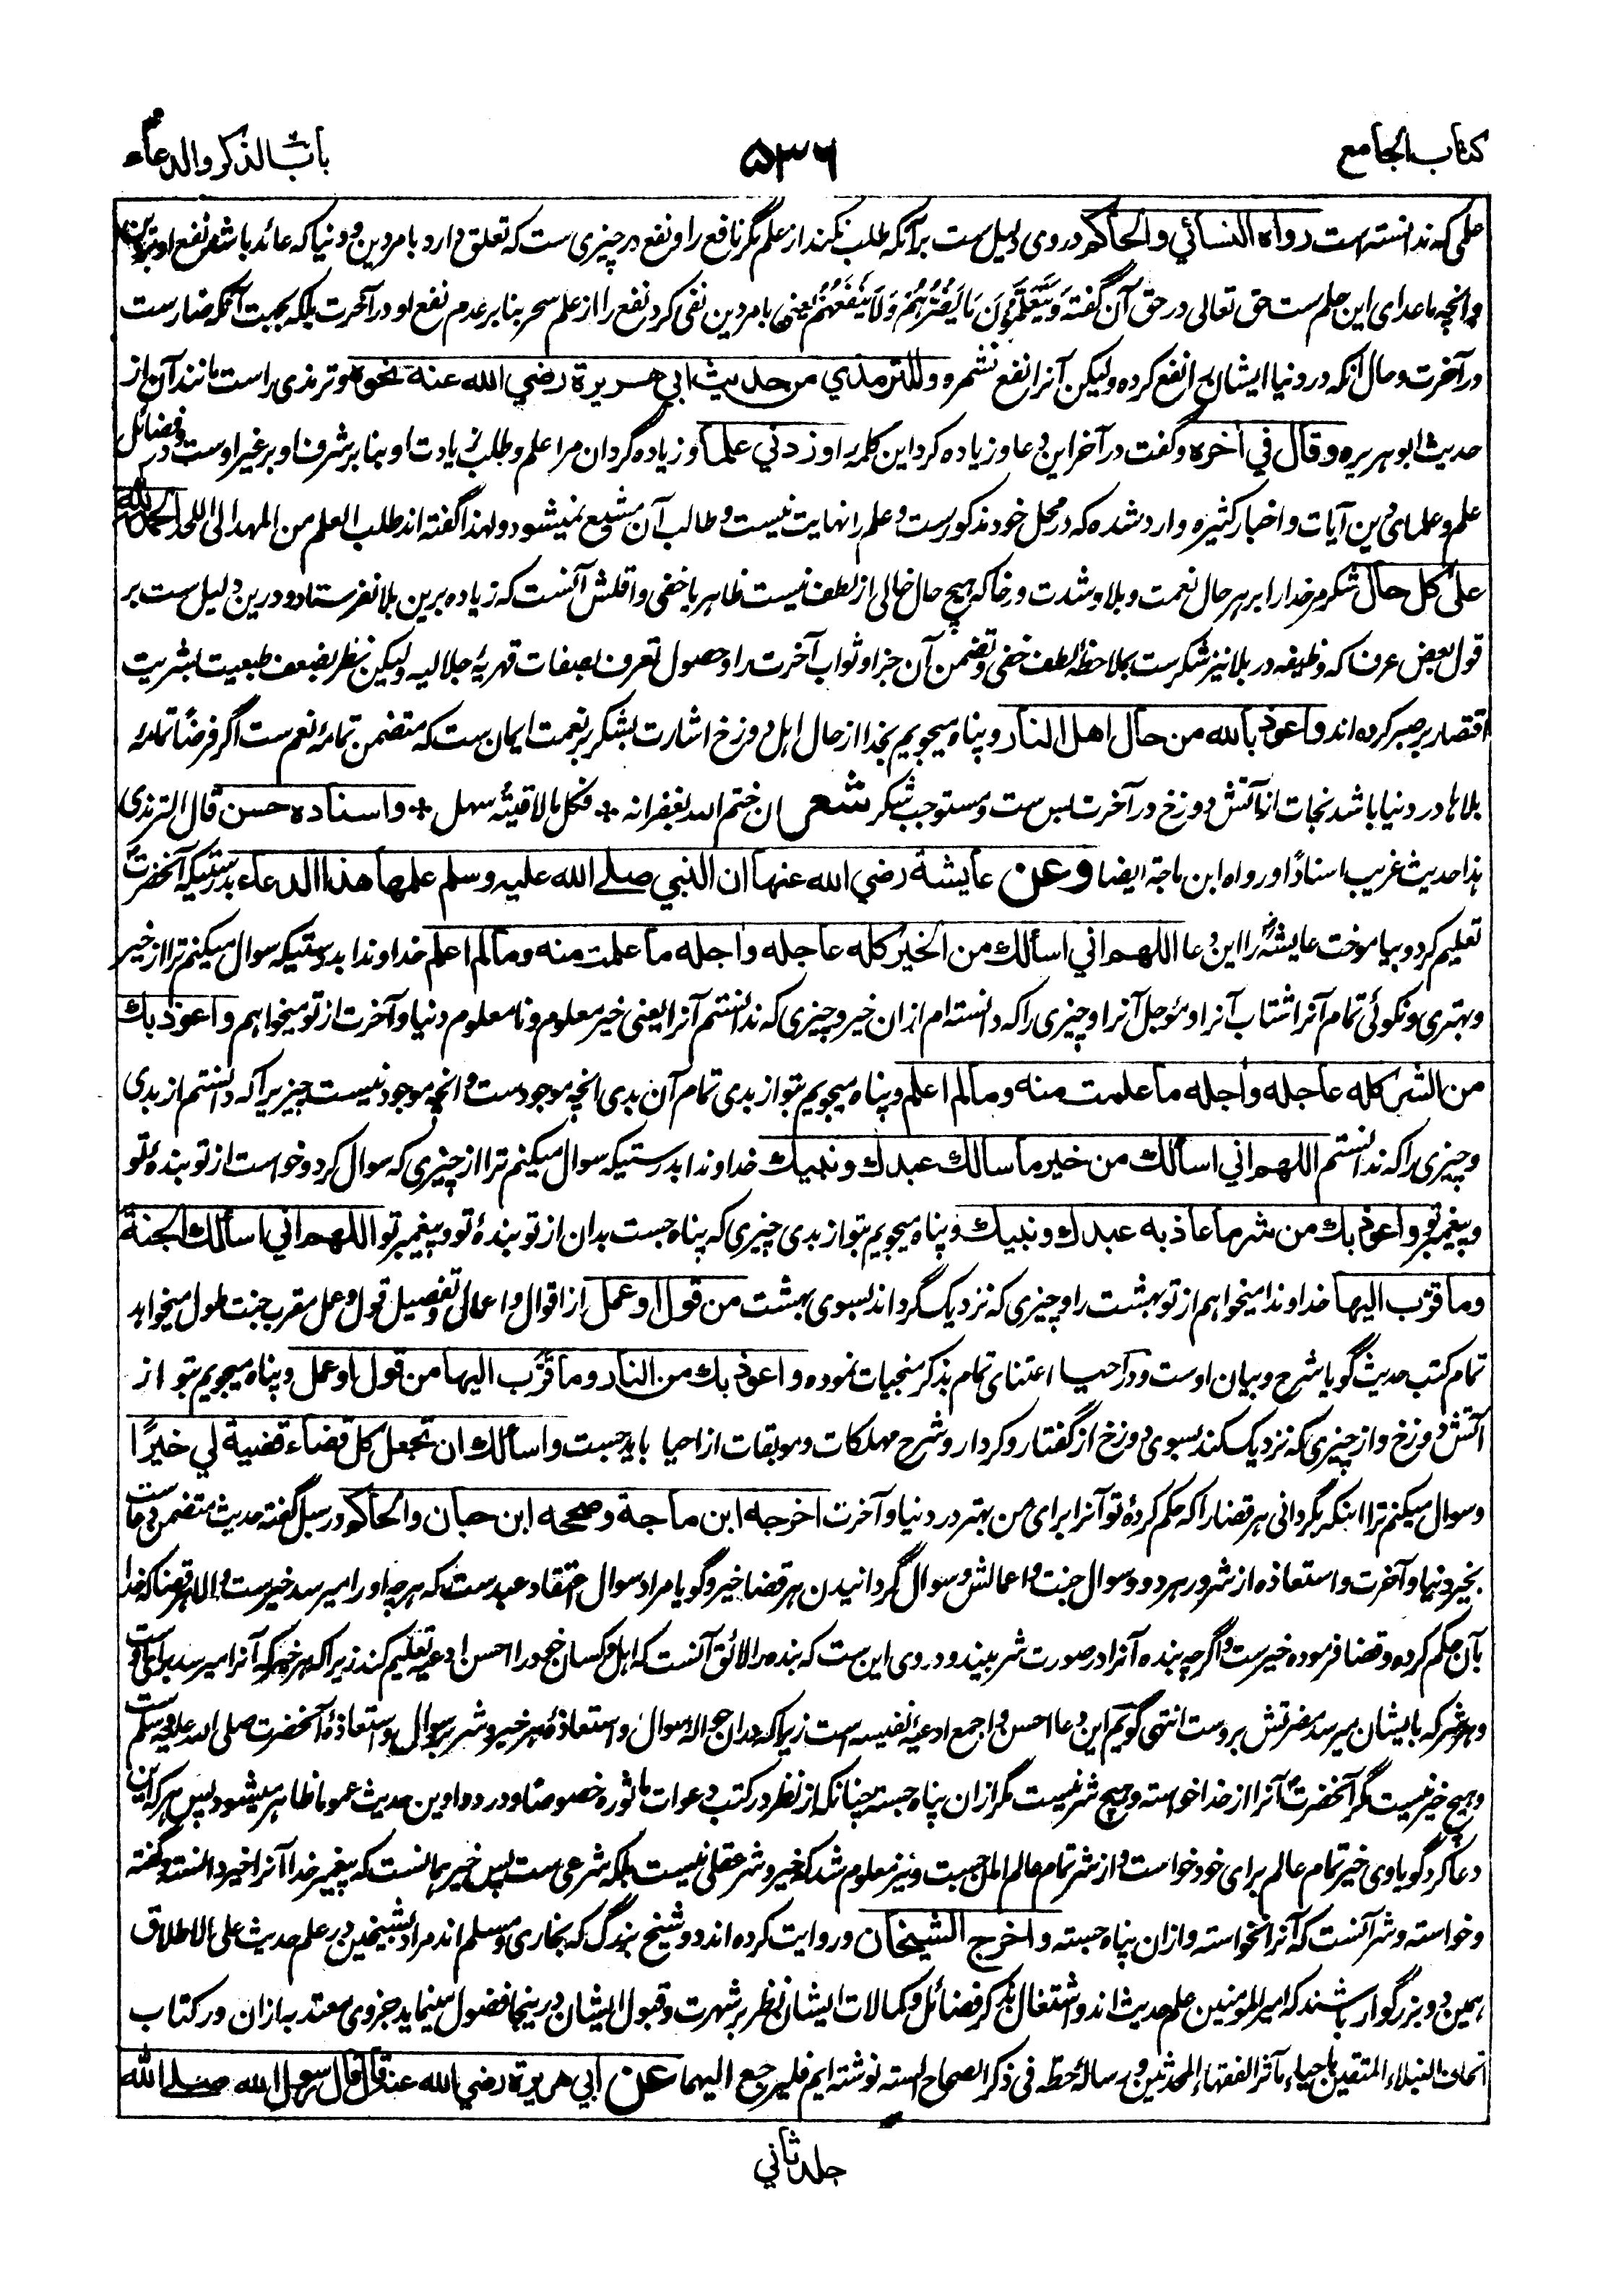 كتاب الجامع
۵۳۶
باب الذكر والدعاء
علمی که ندانسته است رواه النسائي والحاكم و در وی دلیل ست بر آنکه طلب نکند از علم مگر نافع را و نفع در چیزی ست که تعلق دارد بامر دین و دنیا که عائد باشد نفع او
وانچه ماعدای این علم ست حق تعالی در حق آن گفته وَيَتَعَلَّمُونَ مَا يَضُرُّهُمْ وَلَا يَنْفَعُهُمْ یعنی بامر دین نفی کرد نفع را از علم سحر بنا بر عدم نفع او در آخرت بلکه بجهت آنکه ضارست
در آخرت و حال آنکه در دنیا ایشان را نفع کرده ولیکن آنرا نفع نشمرده وللترمذي من حديث ابي هريرة رضي الله عنه نحوه و ترمذی راست مانند آن از
حدیث ابو هریره وقال في اخره و گفت در آخر این دعا و زیاده کرد این کلمه را وزدني علما و زیاده گردان مرا علم و طلب زیادت او بنا بر شرف او بر غیر اوست و در فضائل
علم و علمای دین آیات و اخبار کثیره وارد شده که در محل خود مذکورست و علم را نهایت نیست و طالب آن مشبع نمیشود ولهذا گفته اند طلب العلم من المهد الی اللحد الحمد لله
على كل حال شکر مر خدا را بر هر حال نعمت و بلا و شدت و رخا که هیچ حال خالی از لطف نیست ظاهر یا خفی و اقلش آنست که زیاده برین بلا نفرستاد و درین دلیل ست بر
قول بعض عرفا که وظیفه در بلا نیز شکرست بملاحظهٔ لطف خفی و تضمن آن جزا و ثواب آخرت را و حصول تعرف بصفات قهریهٔ جلالیه ولیکن نظر بضعف طبعیت بشریت
اقتصار بر صبر کرده اند واعوذ بالله من حال اهل النار و پناه میجویم بخدا از حال اهل دوزخ اشارت بشکر بر نعمت ایمان ست که متضمن تمامهٔ نعم ست اگر فرضًا تمامهٔ
بلاها در دنیا باشد نجات از آتش دوزخ در آخرت بس ست و مستوجب شکر شعر ان ختم الله بغفرانه ❊ فکل مالاقیته سهل ❊ واسناده حسن قال الترمذی
هذا حدیث غریب اسنادًا و رواه ابن ماجة ایضا وعن عايشة رضي الله عنها ان النبي صلے الله عليه وسلم علمها هذا الدعاء بدرستیکه آنحضرت
تعلیم کرد و بیاموخت عایشه را این دعا اللهم اني اسألك من الخير كله عاجله واجله ما علمت منه وما لم اعلم خداوندا بدرستیکه سوال میکنم ترا از خیر
و بهتری و نکوئی تمام آنرا شتاب آنرا و مؤجل آنرا و چیزی را که دانسته ام ازان خیر و چیزی که ندانستم آنرا یعنی خیر معلوم و نا معلوم دنیا و آخرت از تو میخواهم واعوذ بك
من الشر كله عاجله واجله ما علمت منه وما لم اعلم و پناه میجویم بتو از بدی تمام آن بدی انچه موجودست و انچه موجود نیست چیزیرا که دانستم از بدی
و چیزی را که ندانستم اللهم اني اسألك من خير ما سألك عبدك ونبيك خداوندا بدرستیکه سوال میکنم ترا از چیزی که سوال کرد و خواست از تو بندهٔ تو
و پیغمبر تو واعوذ بك من شر ما عاذ به عبدك ونبيك و پناه میجویم بتو از بدی چیزی که پناه جست بدان از تو بندهٔ تو و پیغمبر تو اللهم اني اسألك الجنة
وما قرّب اليها خداوندا میخواهم از تو بهشت را و چیزی که نزدیک گرداند بسوی بهشت من قول او عمل از اقوال و اعمالی و تفصیل قول و عمل مقرب جنت طول میخواهد
تمام کتب حدیث گویا شرح و بیان اوست و در احیا اعتنای تمام بذکر منجیات نموده واعوذ بك من النار وما قرّب اليها من قول او عمل و پناه میجویم بتو از
آتش دوزخ و از چیزی که نزدیک کند بسوی دوزخ از گفتار و کردار و شرح مهلکات و موبقات از احیا باید جست واسألك ان تجعل كل قضاء قضيته لي خيرًا
و سوال میکنم ترا اینکه بگردانی هر قضا را که حکم کردهٔ تو آنرا برای من بهتر در دنیا و آخرت اخرجه ابن ماجة وصححه ابن حبان والحاكم در سبل گفته حدیث متضمن دعاست
بخیر دنیا و آخرت و استعاذه از شرور هر دو و سوال جنت و اعمالش و سوال گردانیدن هر قضا خیر و گویا مراد سوال اعتقاد عبدست که هر چه او را میرسد خیرست و الا هر قضا که خدا
بآن حکم کرده و قضا فرموده خیرست و اگرچه بنده آنرا در صورت شر بیند و در وی این ست که بنده را لائق آنست که اهل و کسان خود را احسن ادعیه تعلیم کند زیرا که هر خیر که آنرا میرسد برای اوست
و هر شر که بایشان میرسد مضرتش بروست انتهی گویم این دعا احسن و اجمع ادعیهٔ نفیسه است زیرا که دران حوالهٔ سوال و استعاذهٔ هر خیر و شر بر سوال و استعاذهٔ آنحضرت صلی الله علیه وسلم ست
و هیچ خیر نیست مگر آنحضرت آنرا از خدا خواسته و هیچ شر نیست مگر ازان پناه جسته چنانکه از نظر در کتب دعوات ماثوره خصوصًا و در دواوین حدیث عموما ظاهر میشود پس هر که این
دعا کرد گویا وی خیر تمام عالم برای خود خواست و از شر تمام عالم امان جست و نیز معلوم شد که خیر و شر عقلی نیست بلکه شرعی ست پس خیر همانست که پیغمبر خدا آنرا خیر دانسته و گفته
و خواسته و شر آنست که آنرا نخواسته و ازان پناه جسته واخرج الشيخان و روایت کرده اند دو شیخ بزرگ که بخاری و مسلم اند مراد بشیخین در علم حدیث علی الاطلاق
همین دو بزرگوار باشند که امیر المومنین علم حدیث اند و اشتغال بذکر فضائل و کمالات ایشان نظر بر شهرت و قبول ایشان درینجا فضول مینماید جزوی معتد به ازان در کتاب
اتحاف النبلاء المتقین باحیاء مآثر الفقهاء المحدثین و رسالهٔ حطه فی ذکر الصحاح السته نوشته ایم فلیرجع الیهما عن ابي هريرة رضي الله عنه قال قال رسول الله صلے الله
جلد ثاني